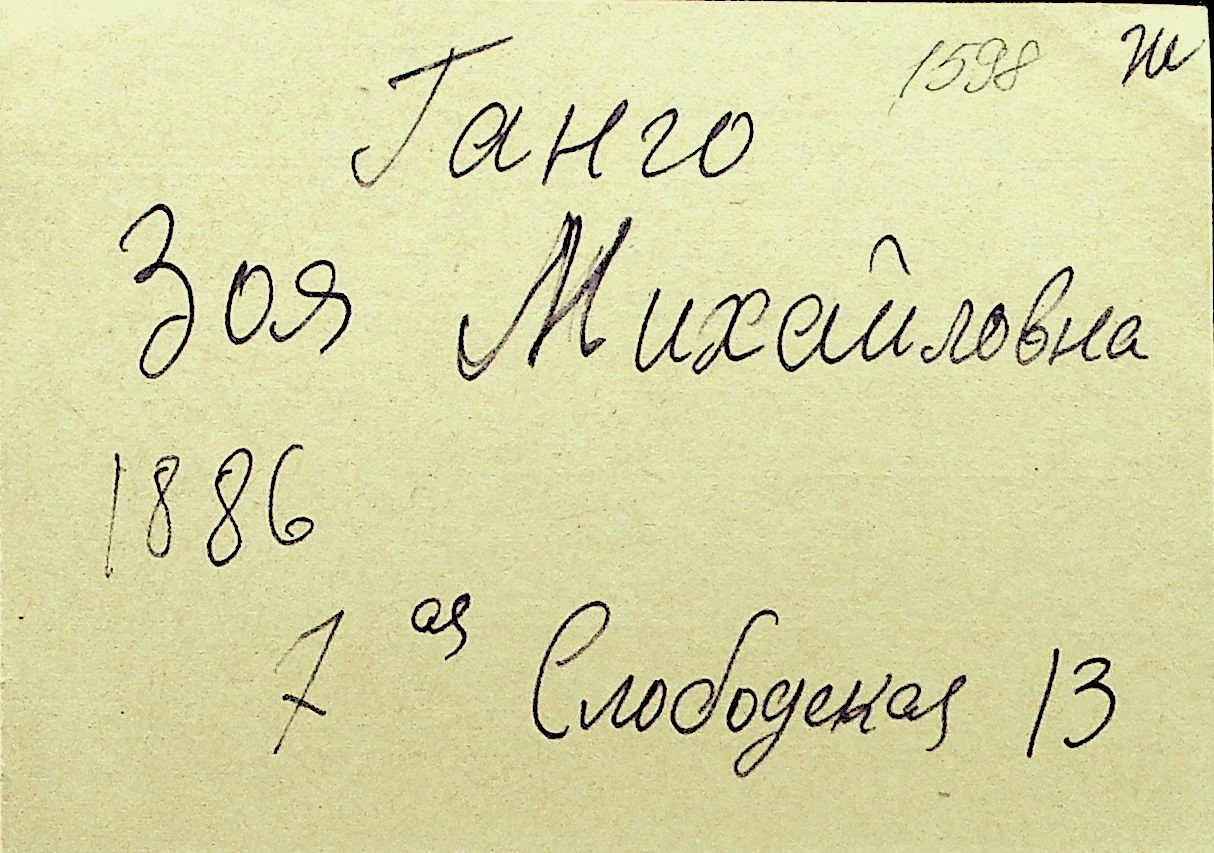 1598 Ж
Ганго
Зоя Михайловна
1886
7 ая Слободская 13